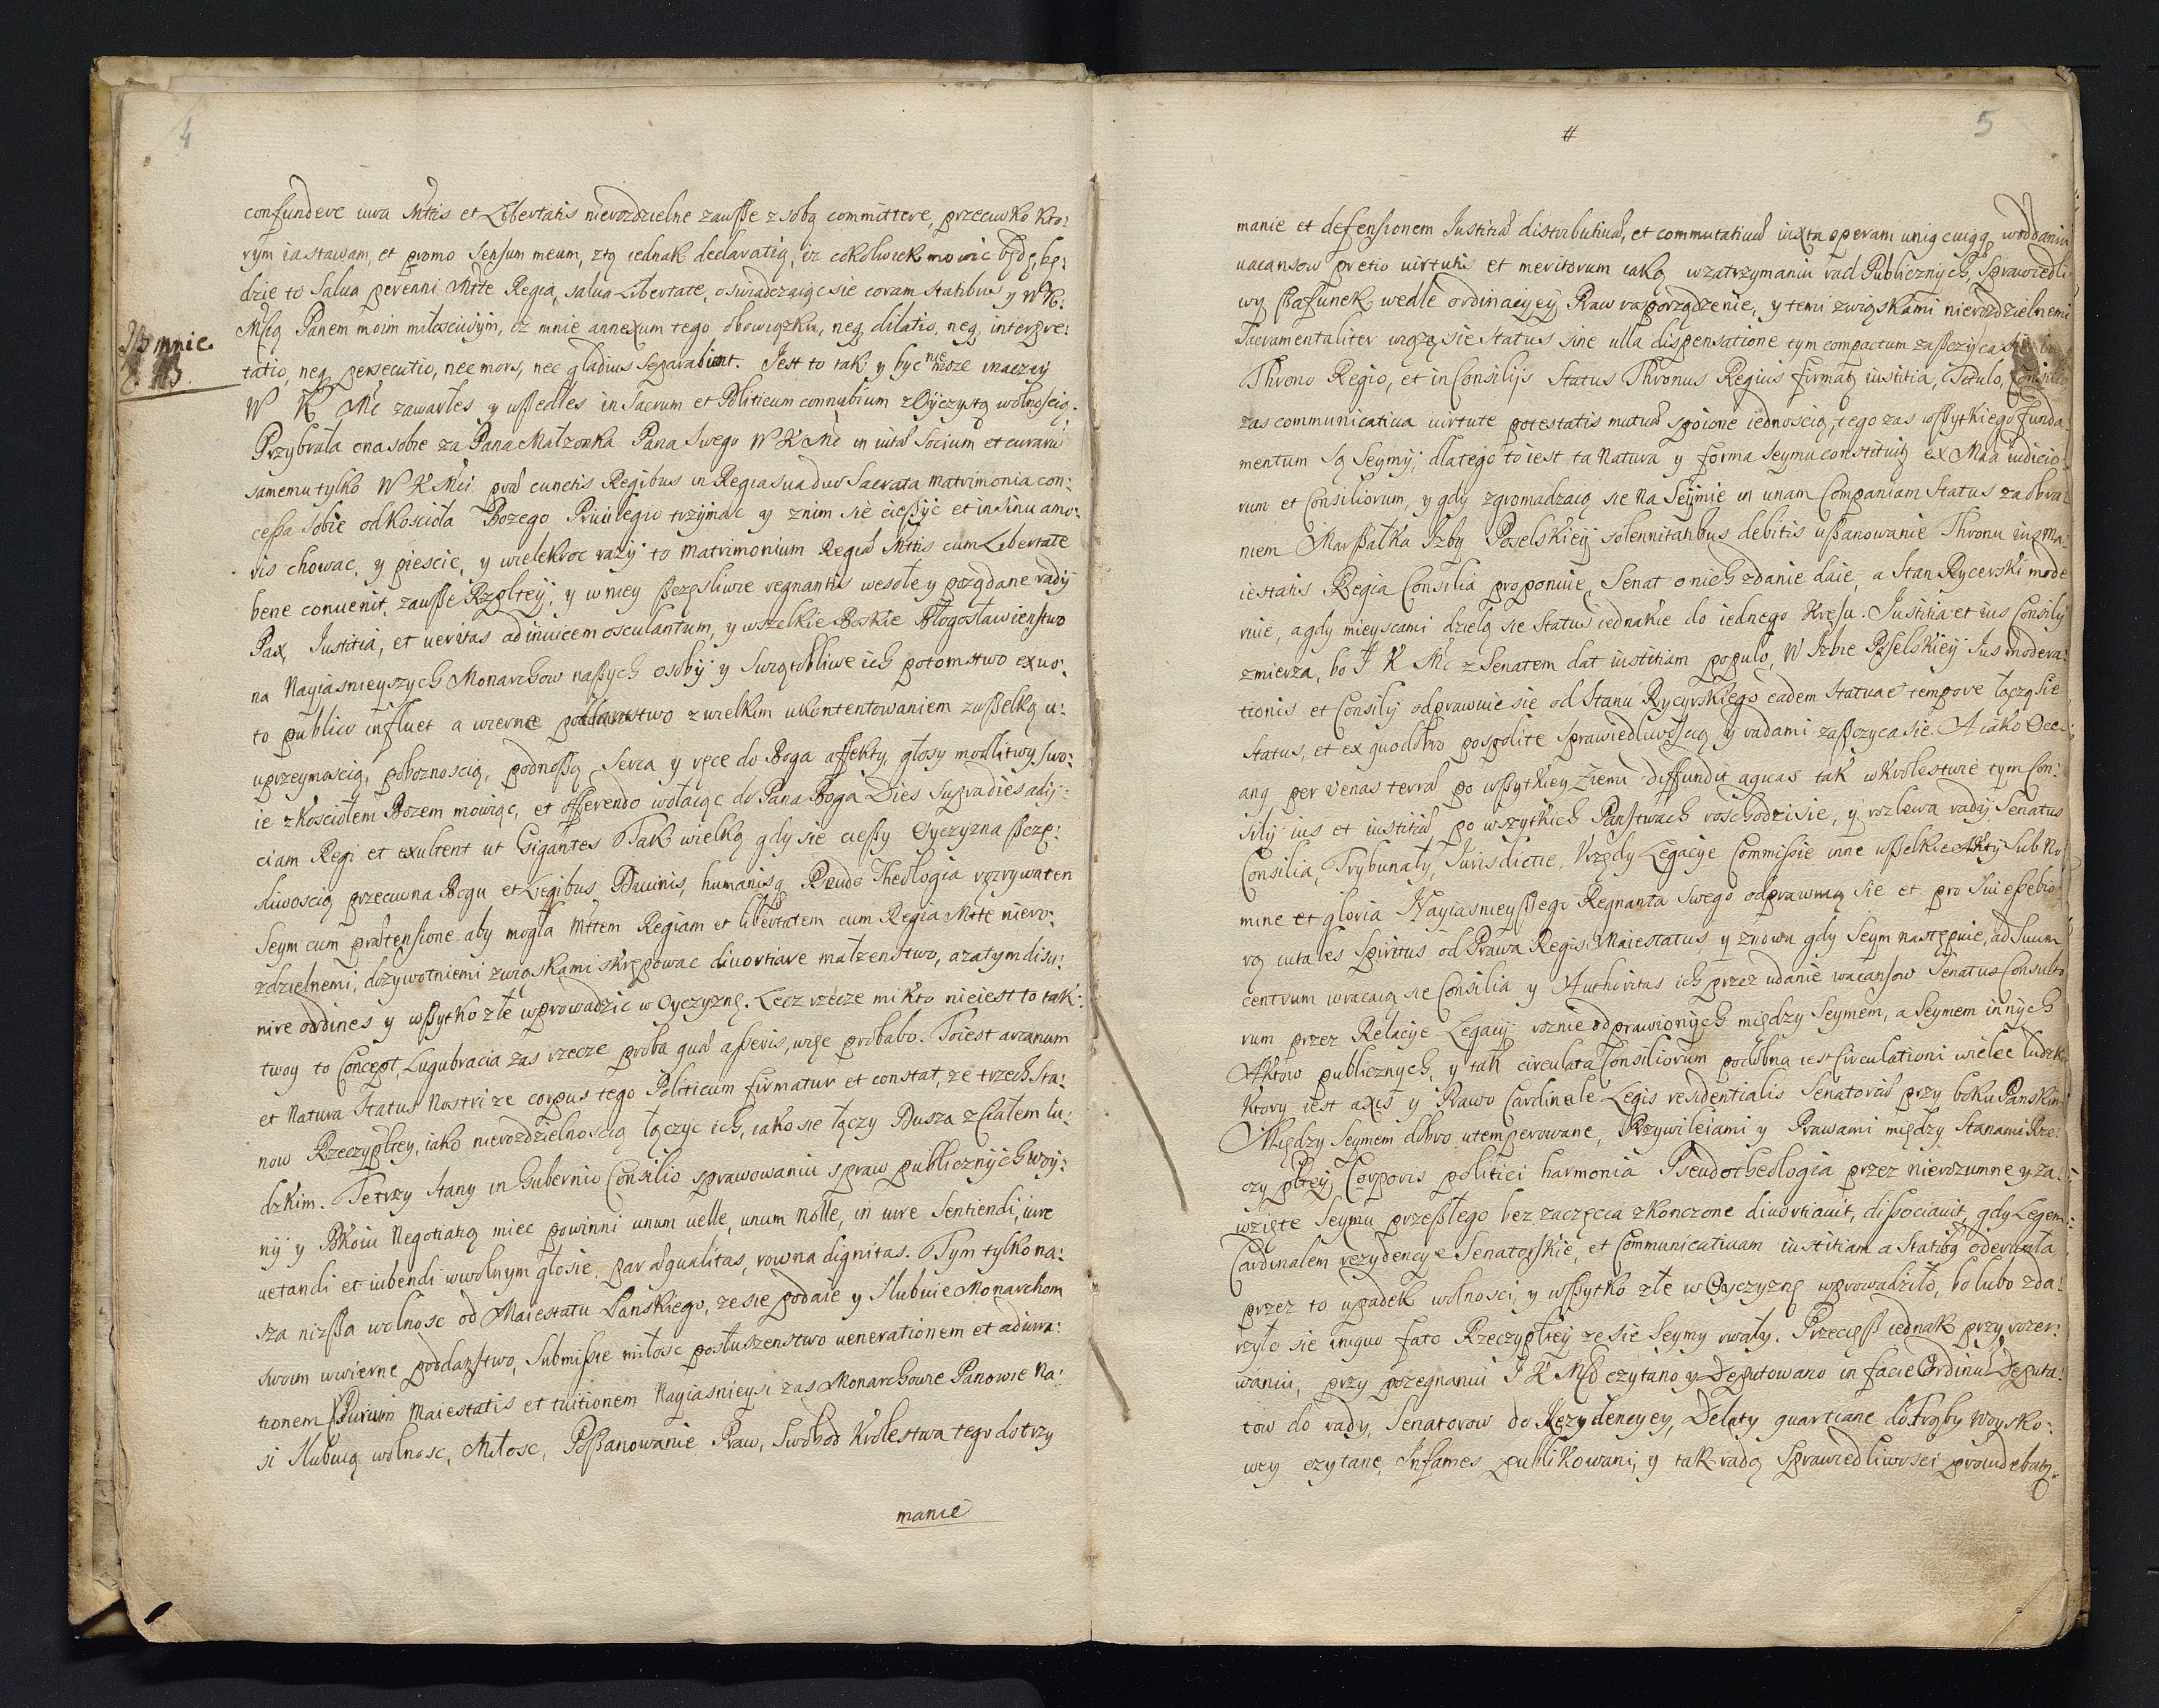 4
confundere iura Mttis et Libertatis nierozdzielne zawsse z sobą committere, przeciwko kto:
rym ia stawam, et promo Sensum meum, ztą iednak declaratią, iz cokolwiek mowic będę, bę:
dzie to Salua perenni Mtte Regia, salua Libertate, oswiadczaiąc sie coram Statibus y WK:
Mscią Panem moim miłosciwym, iz mnie annexum tego obowiązku, neq dilatio, neq interpre:
tatio, neq persecutio, nec mors, nec gladius Separabunt. Jest to tak y byc nie moze inaczey
W K Mc zawarłes y wssedłes in Sacrum et Politicum connubium z Oyczystą wolnoscią.
Przybrała ona sobie za Pana Małzonka Pana Swego W K Mc in
samemu tylko W K Mci præ cunctis Regibus in Regia sua duo Sacrata matrimonia con:
cessa Sobie od Koscioła Bozego Priuilegio trzymac y z nim sie ciessyć et in sinu amo:
ris chowac, y piescic, y wielekroc razy to matrimonium Regiæ Mttis cum Libertate
bene conuenit, zawsse Rzpltey, y w niey sczęsliwie regnantis wesołe y poządane rady
Pax, Justitia, et ueritas adinuicem osculantum, y wszelkie Boskie Błogosławienstwo
na Nayiasnieyszych Monarchow nassych osoby y Swiątobliwe ich potomstwo ex uo:
to publico influet a wierne poddanstwo z wielkim ukontentowaniem zwsselką u:
uprzeymoscią, poboznoscią, podnossą Serca y ręce do Boga affekty, głosy modlitwy swo:
ie z Kosciołem Bozem mowiąc, et offerendo wołaiąc do Pana Boga Dies Supra dies adij:
ciam Regi et exultent ut Gigantes Tak wielką gdy sie ciessy Oyczyzna sczę:
sliwoscią przeciwna Bogu et Legibus Diuinis, humanisq Pseudo Theologia rozrywa ten
Seym cum prætensione aby mogła Mttem Regiam et libertatem cum Regia Mtte niero:
zdzielnemi, dozywotniemi związkami skrępowac diuortiare małzenstwo, a zatym disu:
nire ordines y wssytko złe wprowadzic w Oyczyznę. Lecz rzecze mi kto nie iest to tak:
twoy to Concept, Lugubracia zas rzecze proba quæ asseris, więc probabo. To iest arcanum
et Natura Status Nostri ze corpus tego Politicum firmatur et constat, ze trzech Sta:
now Rzeczypltey, iako nierozdzielnoscią łączyc ich, iako sie łączy Dusza z Ciałem lu:
dzkim. Te trzy Stany in Gubernio Consilio sprawowaniu spraw publicznych woy:
ny y Pokoiu Negotiatią miec powinni unum uelle, unum nolle, in iure Sentiendi, iure
uetandi et iubendi wwolnym głosie, par æqualitas, rowna dignitas. Tym tylko na:
sza nizssa wolnosc od Maiestatu Panskiego, ze sie podaie y Slubuie Monarchom
swoim wwierne poddanstwo, Submissie miłosc posłuszenstwo uenerationem et
tionem Maiestatis et tuitionem Nayiasnieysi zas Monarchowie Panowie Na:
si Slubuią wolnosc, Miłosc, Possanowanie Praw, Swobod Krolestwa tego dotrzy
manie
Jz mnie.
5
#
manie et defensionem Iustitiæ distributiuæ, et commutatiuæ iuxta operam uniq cuiqq, woddaniu
uacansow pretio uirtutis et meritorum iako w zatrzymaniu rad Publicznych, Sprawiedli:
wy ssafunek wedle ordinacyey Praw rasporządzenie, y temi związkami nierozdzielnemi
Sacramentaliter wiążą sie Status sine ulla dispensatione tym compactum zasczyca sie in
Throno Regio, et in Consilijs Status Thronus Regius firmatq iustitia, Titulo, Consilio
zas communicatiua uirtute potestatis mutuæ spoione iednoscią, tego zas wssytkiego funda
mentum Są Seymy; dlatego to iest ta Natura y forma Seymu ex Mæa iudicio:
rum et Consiliorum, y gdy zgromadzaią sie na Seymie in unam Companiam Status za obra:
niem Marssałka Jzby Poselskiey solennitatibus debitis ussanowanie Thronu ius Ma:
iestatis Regia Consilia proponuie, Senat o nich zdanie daie, a Stan Rycerski mode
ruie, a gdy mieyscami dzielą sie Status iednakie do iednego Kresu. Iustitia et ius Consilij
zmierza, bo J K Mc z Senatem dat iustitiam populo, W Jzbie Poselskiey Ius modera:
tionis et Consilij odprawuie sie od Stanu Rycyrskiego eadem Statuæ tempore łączą sie
Status, et ex quo dobro pospolite Sprawiedliwoscią y radami zasczyca sie. A iako Oce:
anq per Venas terræ po wssytkiey Ziemi diffundit aquas tak w krolestwie tym Con:
silij ius et iustitiæ po wszytkich Panstwach roschodzi sie, y rozlewa rady, Senatus
Consilia, Trybunały, Iurisdictie, Vrzędy Legacye Commissie inne wsselkie Akty Sub No
mine et gloria Nayiasnieyssego Regnanta Swego odprawuią sie et pro Sui essebio
rą uitales Spiritus od Prawa Regis Maiestatus, y znowu gdy Seym następuie, ad Suum
centrum wracaią sie Consilia y Authoritas ich przez udanie wacansow Senatus Consulto
rum przez Relacye Legacij roznie odprawionych między Seymem, a Seymem innych
Aktow publicznych, y tak circulata Consiliorum podobna iest Circulationi wielce ludzk
Ktory iest axis y Prawo Cardinale Legis residentialis Senatoriæ przy boku Panskim
Między Seymem dobro utemperowane, Przywileiami y Prawami między Stanami Rze:
czy pltey, Corporis politici harmonia Pseudotheologia przez nierozumne y za:
wzięte Seymu przesslego bez zaczęcia zkonczone diuortiauit, dissociauit, gdy Legem
Cardinalem rezydencye Senatorskie, et Communicatiuam iustitiam a Statibq oderwała
przez to upadek wolnosci, y wssytko złe w Oyczyznę wprowadziło, bo lubo zda:
rzyło sie iniquo fato Rzeczypltey ze sie Seymy rwały. Przeciess iednak przy rozer:
waniu, przy pozegnaniu J K Msc czytano y Deputowano in facie Ordinum Deputa:
tow do rady, Senatorow do Rezydencyey, Delaty quartiane do Trąby Woysko:
wey czytane, Infames publikowani, y tak radą Sprawiedliwosci prouidebatq.